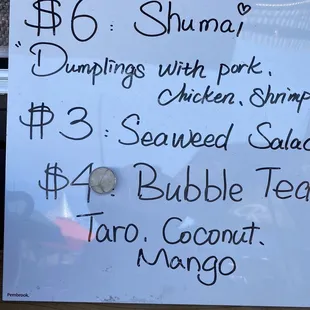 $6: Shumai
"Dumplings with pork,
chicken, shrimp
$3: Seaweed Salad
$4: Bubble Tea
Taro, Coconut,
Mango
Pembrook.